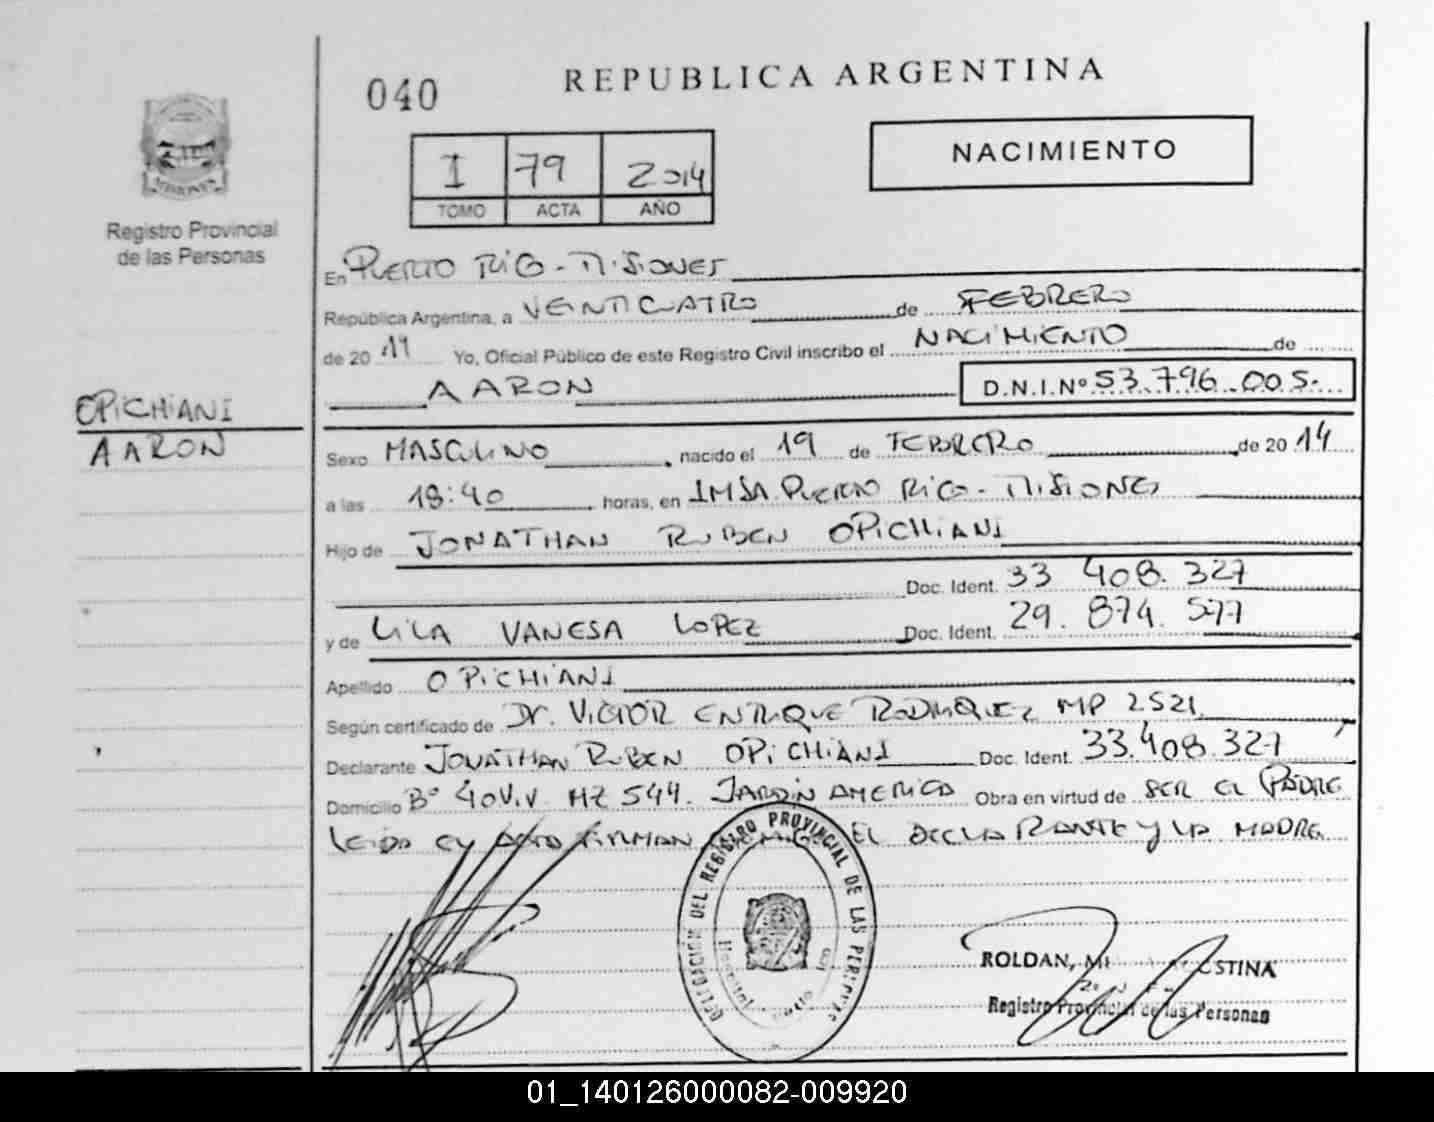 040
REPUBLICA ARGENTINA
I 79 2014
TOMO ACTA AÑO
NACIMIENTO
MISIONES
Registro Provincial
de las Personas
OPICHIANI
AARON
En PUERTO RICO - MISIONES
República Argentina, a VEINTICUATRO de FEBRERO
de 20 Yo, Oficial Público de este Registro Civil inscribo el NACIMIENTO de
AARON D.N.I.Nº 53.796.005.-
Sexo MASCULINO nacido el 19 de FEBRERO de 20 14
a las 18:40 horas, en IMSA PUERTO RICO - MISIONES
Hijo de JONATHAN RUBEN OPICHIANI
Doc. Ident. 33 408.327
y de LILA VANESA LOPEZ Doc. Ident. 29.874.577
Apellido OPICHIANI
Según certificado de Dr. VICTOR ENRIQUE RODRIQUEZ MP 2521
Declarante JONATHAN RUBEN OPICHIANI Doc. Ident. 33.408.327
Domicilio Bº 40 VIV. MZ 544. JARDIN AMERICA Obra en virtud de SER EL PADRE
LEIDA EL ACTA FIRMAN EL DECLARANTE Y LA MADRE
DELEGACION DEL REGISTRO PROVINCIAL DE LAS PERSONAS
Hospital
ROLDAN,
Registro Provincial de las Personas
01_140126000082-009920